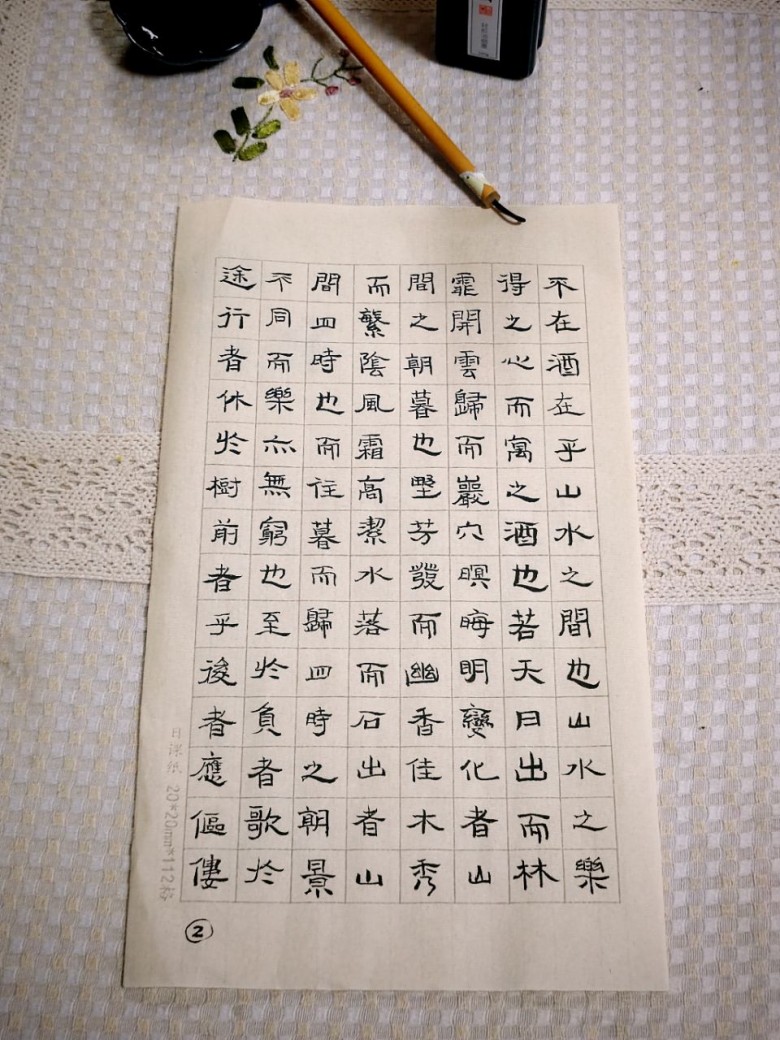 不在酒在乎山水之間也山水之樂
得之心而寓之酒也若夫日出而林
霏開雲歸而巖穴暝晦明變化者山
間之朝暮也野芳發而幽香佳木秀
而繁陰風霜高潔水落而石出者山
間四時也而往暮而歸四時之朝景
不同而樂亦無窮也至於負者歌於
途行者休於樹前者乎後者應傴僂
日課紙 20*20mm*112格
②